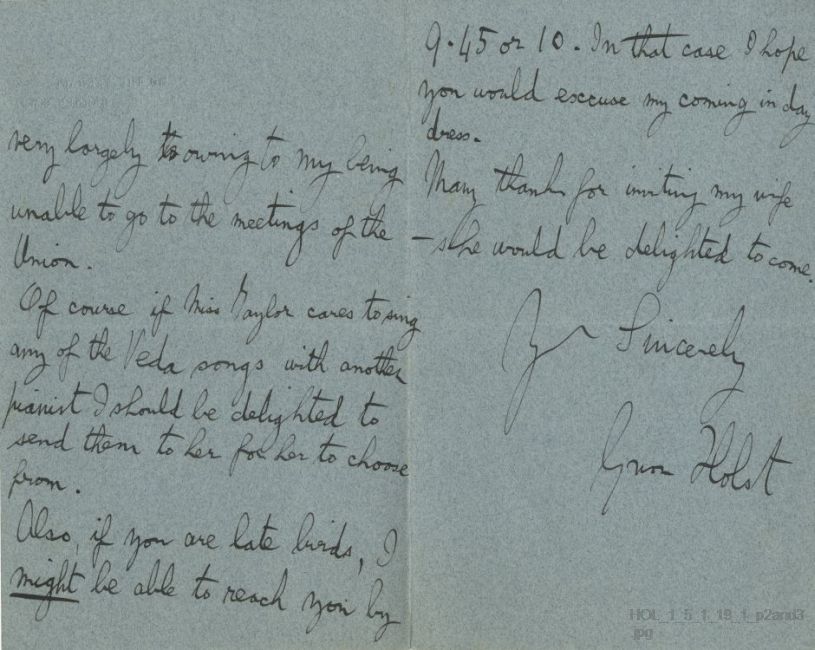 very largely to owing to my being
unable to go to the meetings of the
Union.
Of course if Miss Taylor cares to sing
any of the Veda songs with another
pianist I should be delighted to
send them to her for her to choose
from.
Also, if you are late birds, I
might be able to reach you by
9.45 or 10. In that case I hope
you would exccuse my coming in day
dress.
Many thanks for inviting my wife
– she would be delighted to come.
Sincerely
Holst
HOL_1_5_1_19_1_p2and3
.jpg